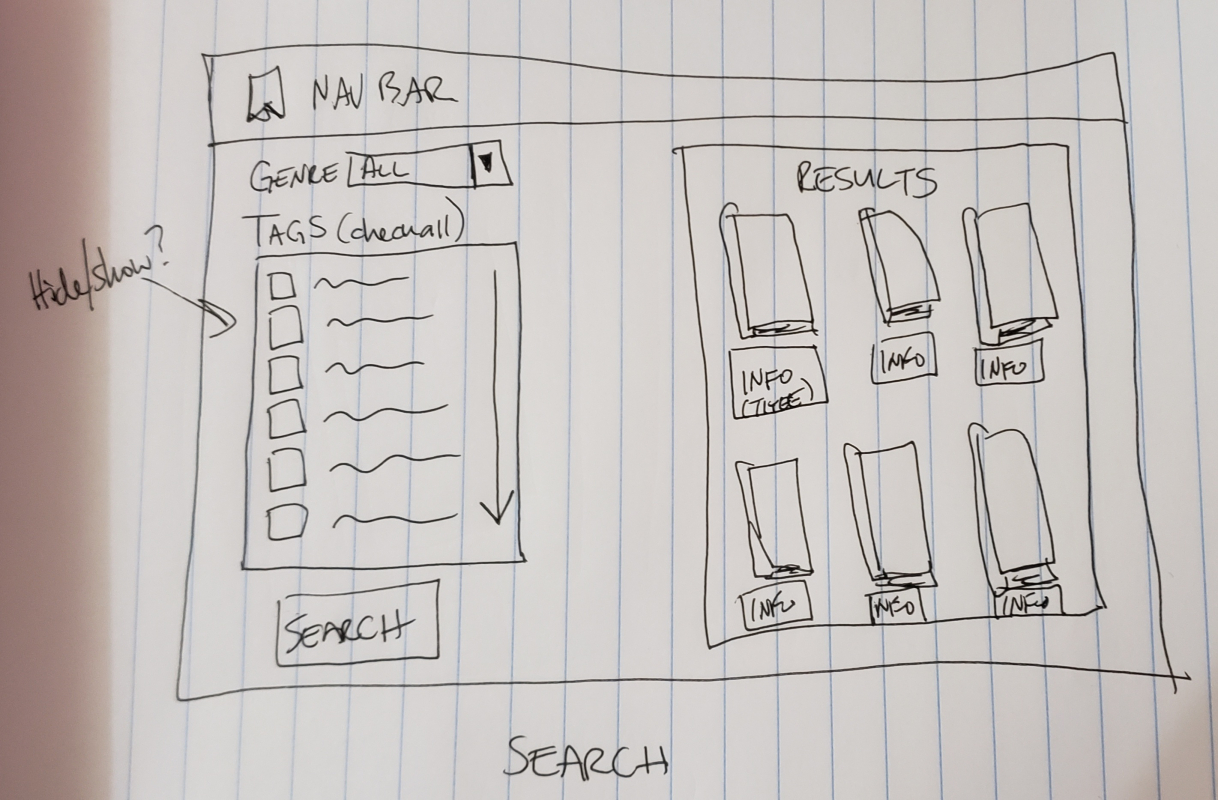 NAV BAR
GENRE ALL
TAGS (checkall)
Hide/show?
SEARCH
RESULTS
INFO
(TITLE)
INFO
INFO
INFO
INFO
INFO
SEARCH